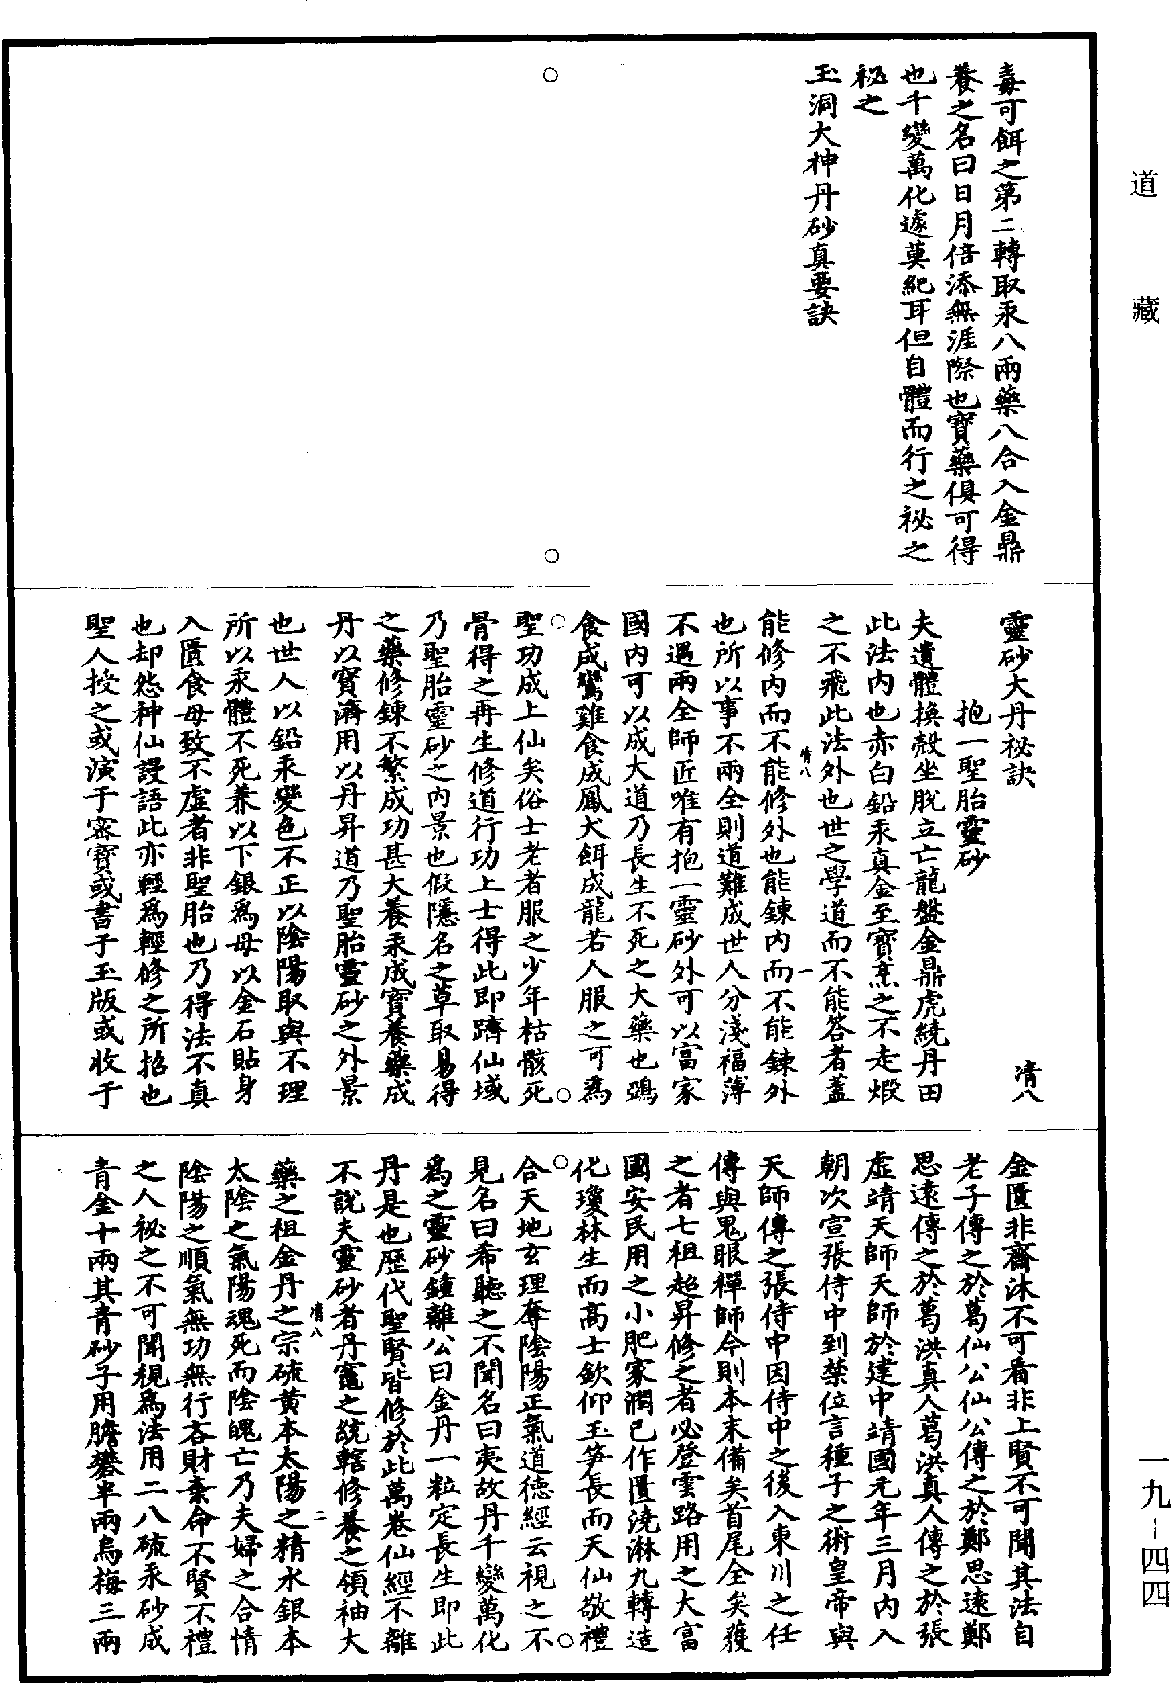 道藏
毒可餌之第二轉取汞八兩藥八合入金鼎
養之名曰日月倍添無涯際也寶藥俱可得
也千變萬化遽莫紀耳但自體而行之祕之
祕之
玉洞大神丹砂真要訣
靈砂大丹祕訣
清八
抱一聖胎靈砂
夫遺體換殼坐脫立亡龍盤金鼎虎繞丹田
此法內也赤白鉛汞真金至寶烹之不走煅
之不飛此法外也世之學道而不能答者蓋
能修內而不能修外也能鍊內而不能鍊外
也所以事不兩全則道難成世人分淺福薄
不遇兩全師匠唯有抱一靈砂外可以富家
國內可以成大道乃長生不死之大藥也鵶
食成鸞雞食成鳳犬餌成龍若人服之可為
聖功成上仙矣俗士老者服之少年枯骸死
骨得之再生修道行功上士得此即躋仙域
乃聖胎靈砂之內景也假隱名之草取易得
之藥修鍊不繁成功甚大養汞成寶養藥成
丹以寶濟用以丹昇道乃聖胎靈砂之外景
也世人以鉛汞變色不正以陰陽取與不理
所以汞體不死養以下銀為母以金石貼身
入匱食母致不虛者非聖胎也乃得法不真
也却怨神仙謾語此亦輕為輕修之所招也
聖人授之或演于密寶或書于玉版或收于
清八
一
金匱非齋沐不可看非上賢不可聞其法自
老子傳之於葛仙公仙公傳之於鄭思遠鄭
思遠傳之於葛洪真人葛洪真人傳之於張
虛靖天師天師於建中靖國元年三月內入
朝次宣張侍中到禁位言種子之術皇帝與
天師傳之張侍中因侍中之後入東川之任
傳與鬼眼禪師今則本末備矣首尾全矣獲
之者七祖超昇修之者必登雲路用之大富
國安民用之小肥家潤己作匱澆淋九轉造
化瓊林生而高士欽仰玉笋長而天仙敬禮
合天地玄理奪陰陽正氣道德經云視之不
見名曰希聽之不聞名曰夷故丹千變萬化
為之靈砂鍾離公曰金丹一粒定長生即此
丹是也歷代聖賢皆修於此萬卷仙經不離
不說夫靈砂者丹竈之統轄修養之領袖大
藥之祖金丹之宗硫黃本太陽之精水銀本
太陰之氣陽魂死而陰魄亡乃夫婦之合情
陰陽之順氣無功無行吝財棄命不賢不禮
之人祕之不可聞視為法用二八硫汞砂成
青金十兩其青砂子用膽礬半兩烏梅三兩
清八
二
一九-四四